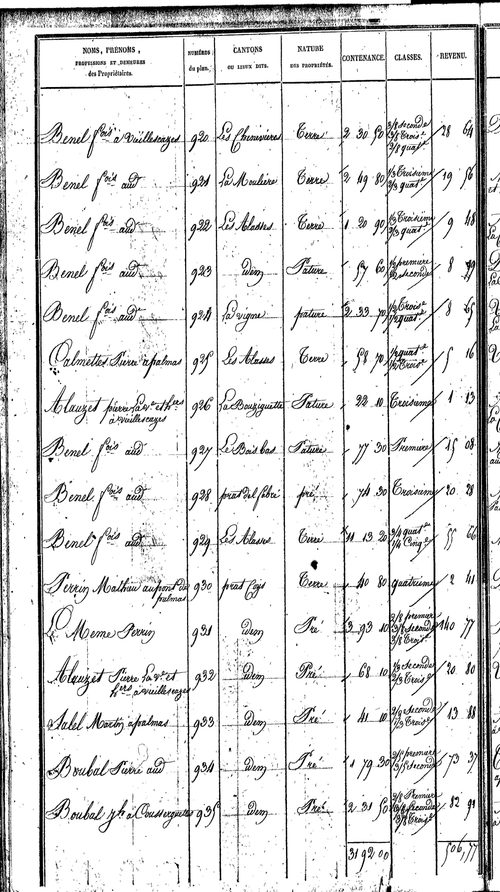 NOMS, PRÉNOMS, PROFESSIONS ET DEMEURES des Propriétaires. NUMÉROS du plan. CANTONS OU LIEUX DITS. NATURE DES PROPRIÉTÉS. CONTENANCE. CLASSES. REVENU.
Benel f.ois à vieillescazes 920 Les Chenevieres Terre 2 30 50 3/8 seconde 3/8 Trois.e 2/8 quat.e 28 64
Benel f.ois aud 921 La Mouliere Terre 2 49 80 1/3 Troisieme 2/3 quat.e 19 56
Benel f.ois aud 922 Les Alasses Terre 1 20 90 1/3 Troisieme 2/3 quat.e 9 48
Benel f.ois aud 923 idem Pature 57 60 1/2 premiere 1/2 seconde 8 79
Benel f.ois aud 924 La vigne pature 2 33 70 1/2 Trois.e 1/2 quat.e 8 65
Calmettes Pierre à palmas 925 Les Alasses Terre 58 70 1/2 quat.e 1/2 Trois.e 5 16
Alauzet pierre La v.e et h.ers à vieillescazes 926 La Bouziguette Pature 22 10 Troisieme 1 13
Benel f.ois aud 927 Le Bois bas Pature 77 30 Premiere 15 08
Benel f.ois aud 928 prat del fabre pré 74 30 Troisieme 20 28
Benel f.ois aud 929 Les Alasses Terre 11 13 20 3/4 quat.e 1/4 Cinq.e 55 66
Perrin Mathieu au pont de palmas 930 prat Terre 40 80 quatrieme 2 41
Le Meme Perrin 931 idem Pré 3 93 10 2/8 premiere 3/8 seconde 3/8 Trois.e 140 77
Alauzet Pierre La v.e et h.ers à vieillescazes 932 idem Pré 68 10 1/3 seconde 2/3 Trois.e 20 80
Salel Martin à palmas 933 idem Pré 41 10 2/3 seconde 1/3 Trois.e 13 88
Boubal Pierre aud 934 idem Pré 1 79 30 2/5 premiere 3/5 seconde 73 37
Boubal à Coussergues 935 idem Pré 2 31 50 2/8 Premiere 3/8 seconde 3/8 Trois.e 82 91
31 92 00 506,77